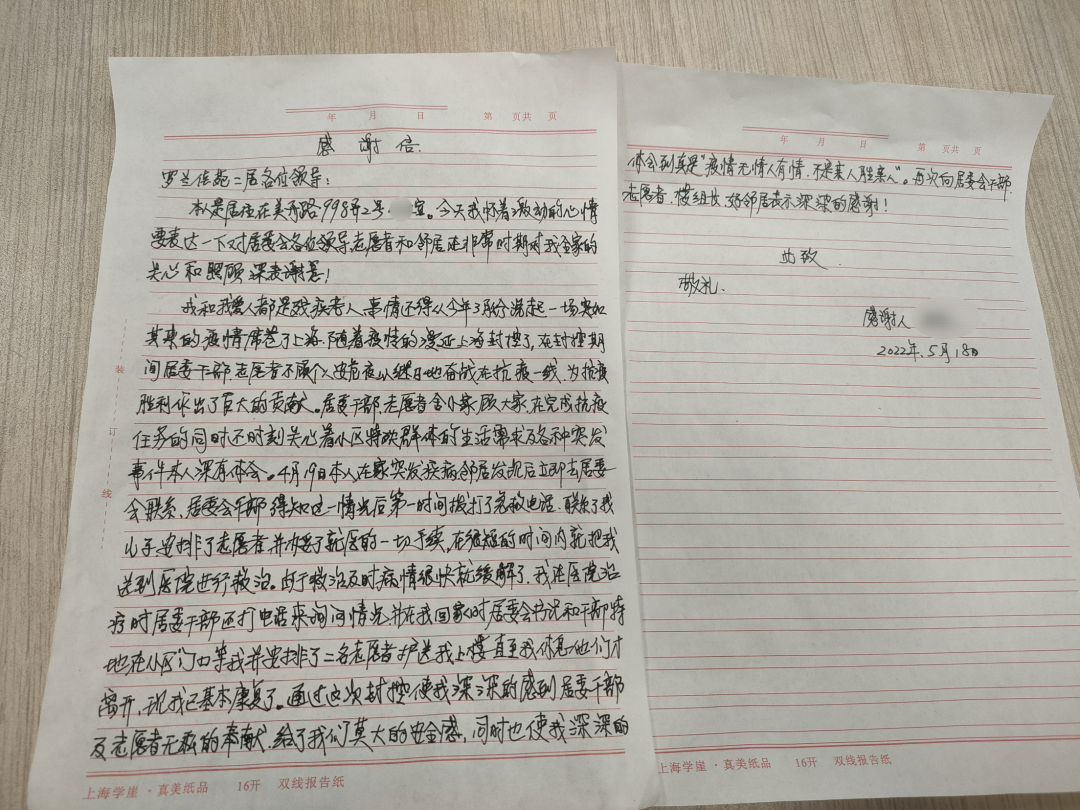 年 月 日 第 页共 页
感谢信.
罗兰佳苑二居各位领导：
本人是居住在美丹路998弄2号 室。今天我怀着激动的心情
要表达一下对居委会各位领导,志愿者和邻居在非常时期对我全家的
关心和照顾深表谢意!
我和我爱人都是残疾老人,事情还得从今年3月份说起一场突如
其来的疫情席卷了上海.随着疫情的漫延上海封控了,在封控期
间居委干部,志愿者不顾个人安危夜以继日地奋战在抗疫一线,为抗疫
胜利作出了巨大的贡献。居委干部,志愿者舍小家顾大家,在完成抗疫
任务的同时还时刻关心着小区特殊群体的生活需求及各种突发
事件本人深有体会。4月19日本人在家突发疾病,邻居发现后立即去居委
会联系,居委会干部得知这一情况后第一时间拨打了急救电话.联系了我
儿子,安排了志愿者,并办妥了就医的一切手续,在很短的时间内就把我
送到医院进行救治。由于救治及时病情很快就缓解了,我在医院治
疗时居委干部还打电话来询问情况,并在我回家时居委会书记和干部特
地在小区门口等我并安排了二名志愿者护送我上楼直至我休息他们才
离开,现我已基本康复了。通过这次封控使我深深的感到居委干部
及志愿者无私的奉献,给了我们莫大的安全感,同时也使我深深的
装
订
线
上海学崖·真美纸品 16开 双线报告纸
年 月 日 第 页共 页
体会到真是"疫情无情人有情,不是亲人胜亲人"。再次向居委会干部,
志愿者,楼组长,好邻居表示深深的感谢!
此致.
敬礼.
感谢人
2022年.5月18日
上海学崖·真美纸品 16开 双线报告纸